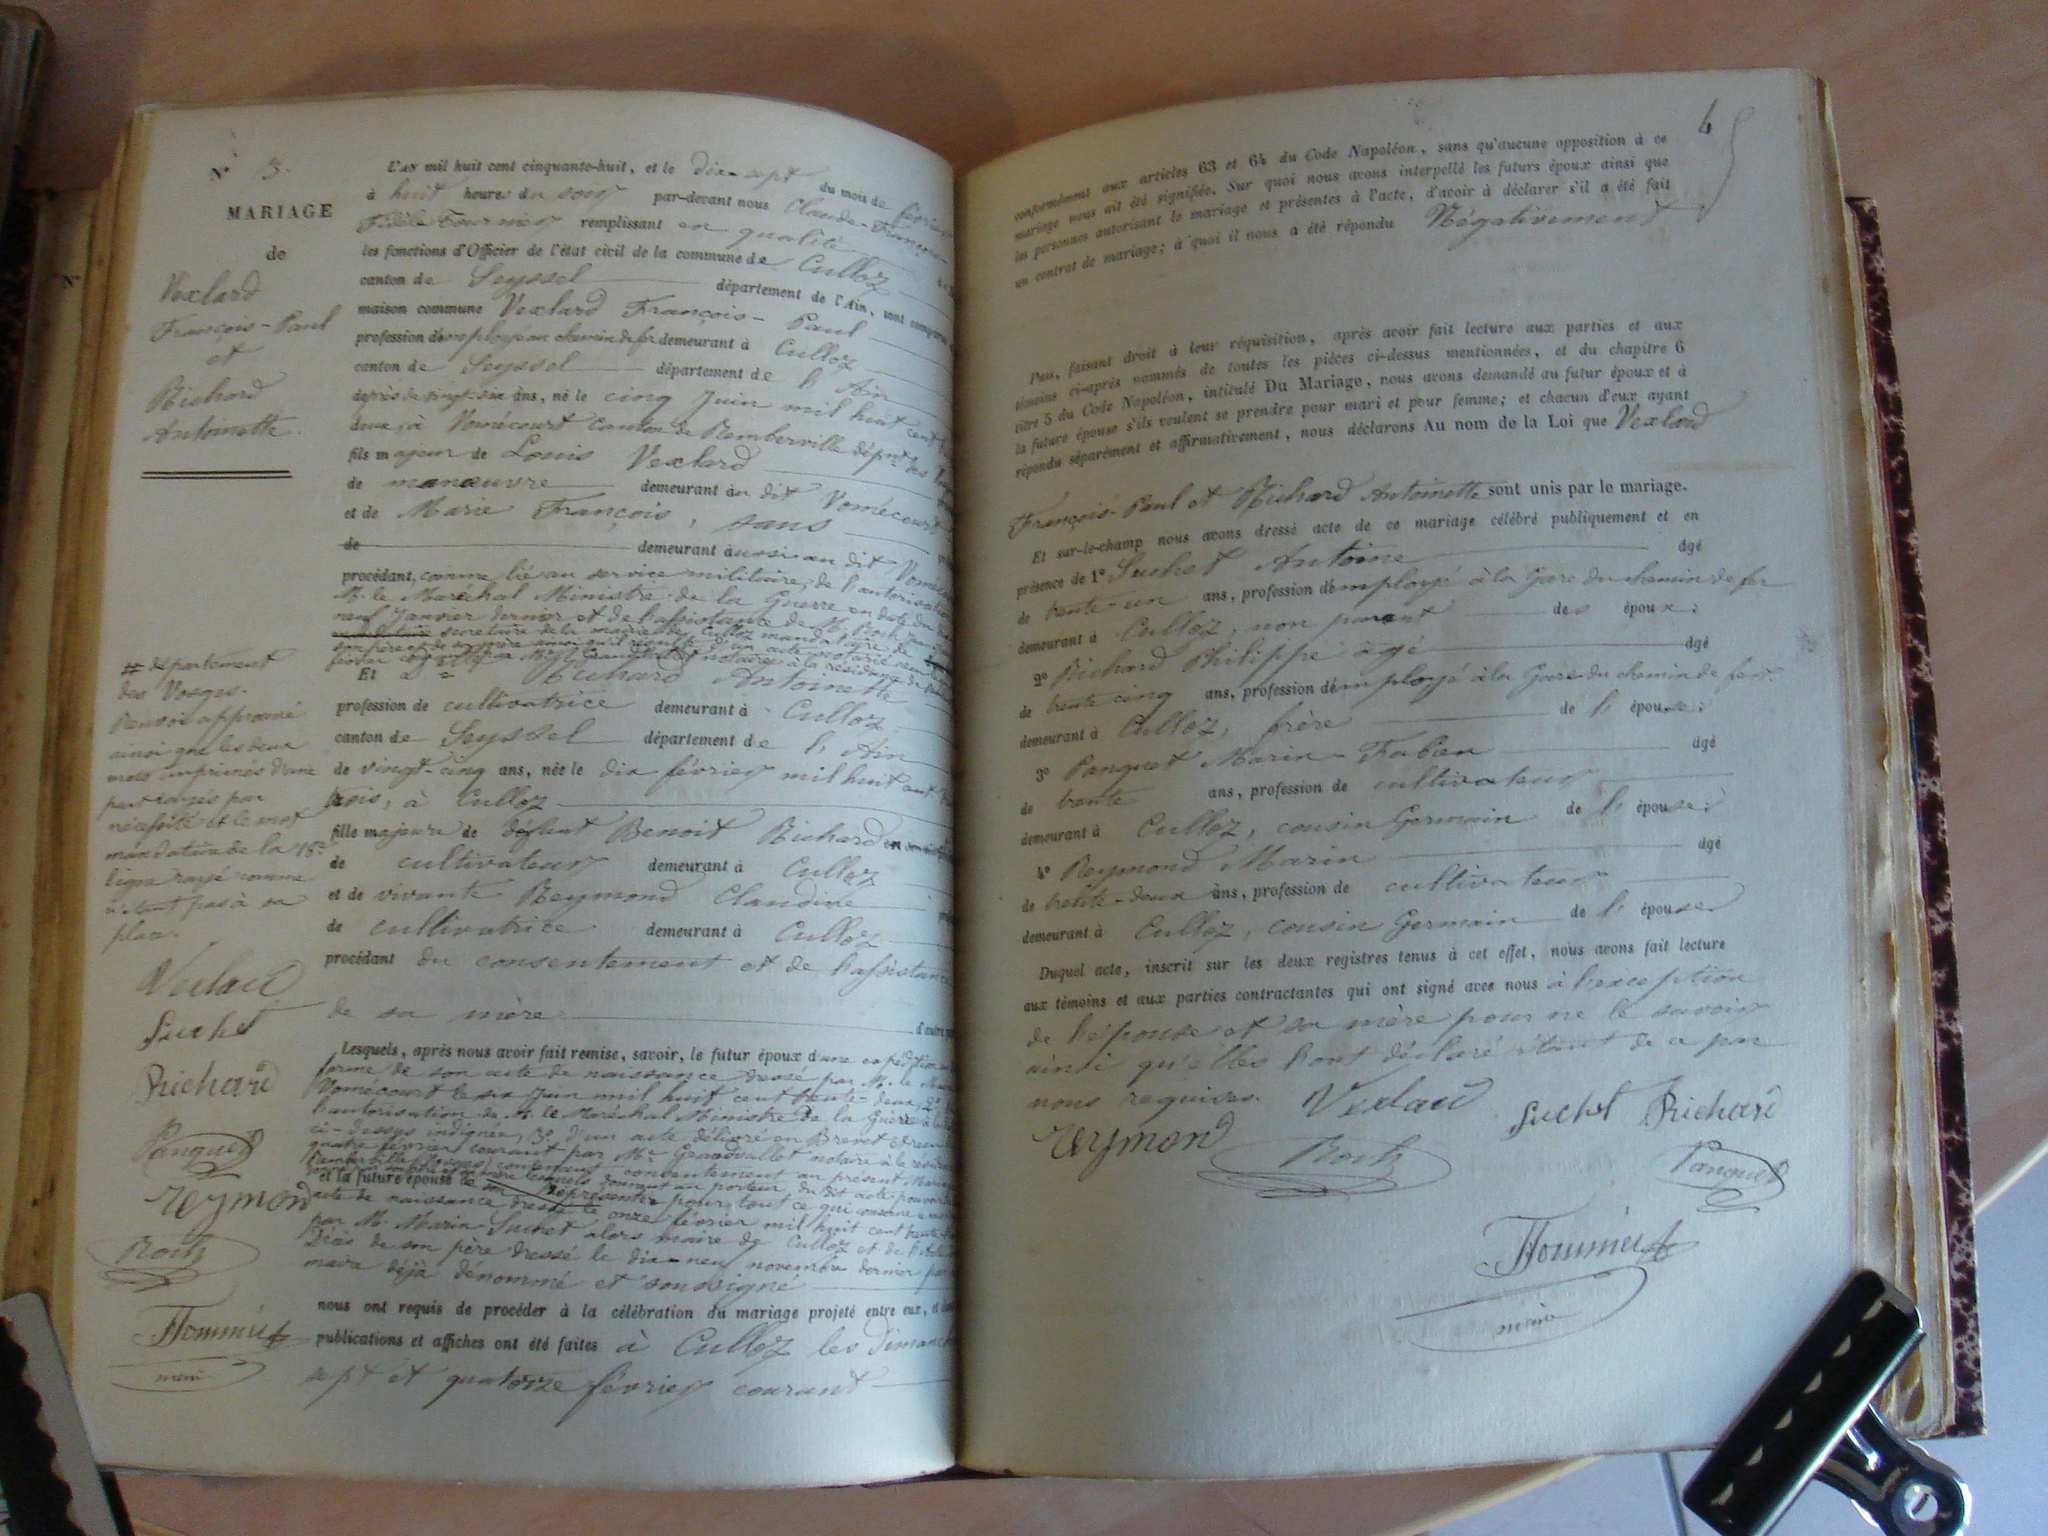 N° 3.
MARIAGE
de
Vexlard
François-Paul
et
Richard
Antoinette.
L'AN mil huit cent cinquante-huit, et le dix-sept du mois de février
à huit heures du soir par-devant nous Claude-François-
Fidèle Fournier remplissant en qualité
les fonctions d'Officier de l'état civil de la commune de Culloz
canton de Seyssel département de l'Ain, sont comparus
maison commune Vexlard François-Paul
profession d'employé au chemin de fer demeurant à Culloz
canton de Seyssel département de l'Ain
de près de vingt-six ans, né le cinq Juin mil huit cent
deux, à Vomécourt canton de Remberville dép.nt des
fils majeur de Louis Vexlard
de manœuvre demeurant au dit Vomécourt
et de Marie François, sans
de demeurant aussi au dit
procédant, comme lié au service militaire, de l'autorisation
M. le Maréchal Ministre de la Guerre en date du
neuf Janvier dernier et de l'assistance de M. Roch
secrétaire de la mairie de Culloz mandataire de
Et D.lle Richard Antoinette
profession de cultivatrice demeurant à Culloz
canton de Seyssel département de l'Ain
de vingt-cinq ans, née le dix février mil huit cent
trois, à Culloz
fille majeure de défunt Benoit Richard
de cultivateur demeurant à Culloz
et de vivante Reymond Claudine
de cultivatrice demeurant à Culloz
procédant du consentement et de l'assistance
de sa mère d'autre part
Lesquels, après nous avoir fait remise, savoir, le futur époux d'une expédition
forme de son acte de naissance dressé par M. le
Vomécourt le six Juin mil huit cent trente-deux, 2°
l'autorisation de M. le Maréchal Ministre de la Guerre
ci-dessus indiquée, 3° d'un acte délivré en Brevet
quatre février courant par Me Grandvallet notaire à la
consentement au présent
et la future épouse représenter pour tout ce qui concerne
acte de naissance dressé le onze février mil huit cent trente
par M. Marin Suchet alors maire de Culloz et de l'
décès de son père dressé le dix-neuf novembre dernier par
maire déjà dénommé et soussigné
nous ont requis de procéder à la célébration du mariage projeté entre eux, et
publications et affiches ont été faites à Culloz les dimanches
sept et quatorze février courant
# département
des Vosges.
Renvoi approuvé
ainsi que les deux
mots imprimés d'une
part rayés par
nécessité et le mot
mandature de la 18e
ligne rayé comme
n'étant pas à sa
place.
Vexlard
Suchet
Richard
Panguet
Reymond
Roch
F Fournier
maire
4
conformément aux articles 63 et 64 du Code Napoléon, sans qu'aucune opposition à ce
mariage nous ait été signifiée. Sur quoi nous avons interpellé les futurs époux ainsi que
les personnes autorisant le mariage et présentes à l'acte, d'avoir à déclarer s'il a été fait
un contrat de mariage; à quoi il nous a été répondu Négativement
Puis, faisant droit à leur réquisition, après avoir fait lecture aux parties et aux
témoins ci-après nommés de toutes les pièces ci-dessus mentionnées, et du chapitre 6
titre 5 du Code Napoléon, intitulé Du Mariage, nous avons demandé au futur époux et à
la future épouse s'ils veulent se prendre pour mari et pour femme; et chacun d'eux ayant
répondu séparément et affirmativement, nous déclarons Au nom de la Loi que Vexlard
François-Paul et Richard Antoinette sont unis par le mariage.
Et sur-le-champ nous avons dressé acte de ce mariage célébré publiquement et en
présence de 1° Suchet Antoine âgé
de trente-un ans, profession d'employé à la Gare du chemin de fer
demeurant à Culloz, non parent des époux;
2° Richard Philippe âgé âgé
de trente cinq ans, profession d'employé à la Gare du chemin de fer
demeurant à Culloz, frère de l'épouse;
3° Panguet Marin-Fabien âgé
de trente ans, profession de cultivateur
demeurant à Culloz, cousin Germain de l'épouse;
4° Reymond Marin âgé
de trente-deux ans, profession de cultivateur
demeurant à Culloz, cousin Germain de l'épouse.
Duquel acte, inscrit sur les deux registres tenus à cet effet, nous avons fait lecture
aux témoins et aux parties contractantes qui ont signé avec nous à l'exception
de l'épouse et sa mère pour ne le savoir
ainsi qu'elles l'ont déclaré étant de ce par
nous requises.
Vexlard
Suchet Richard
Reymond
Roch
Panguet
F Fournier
maire